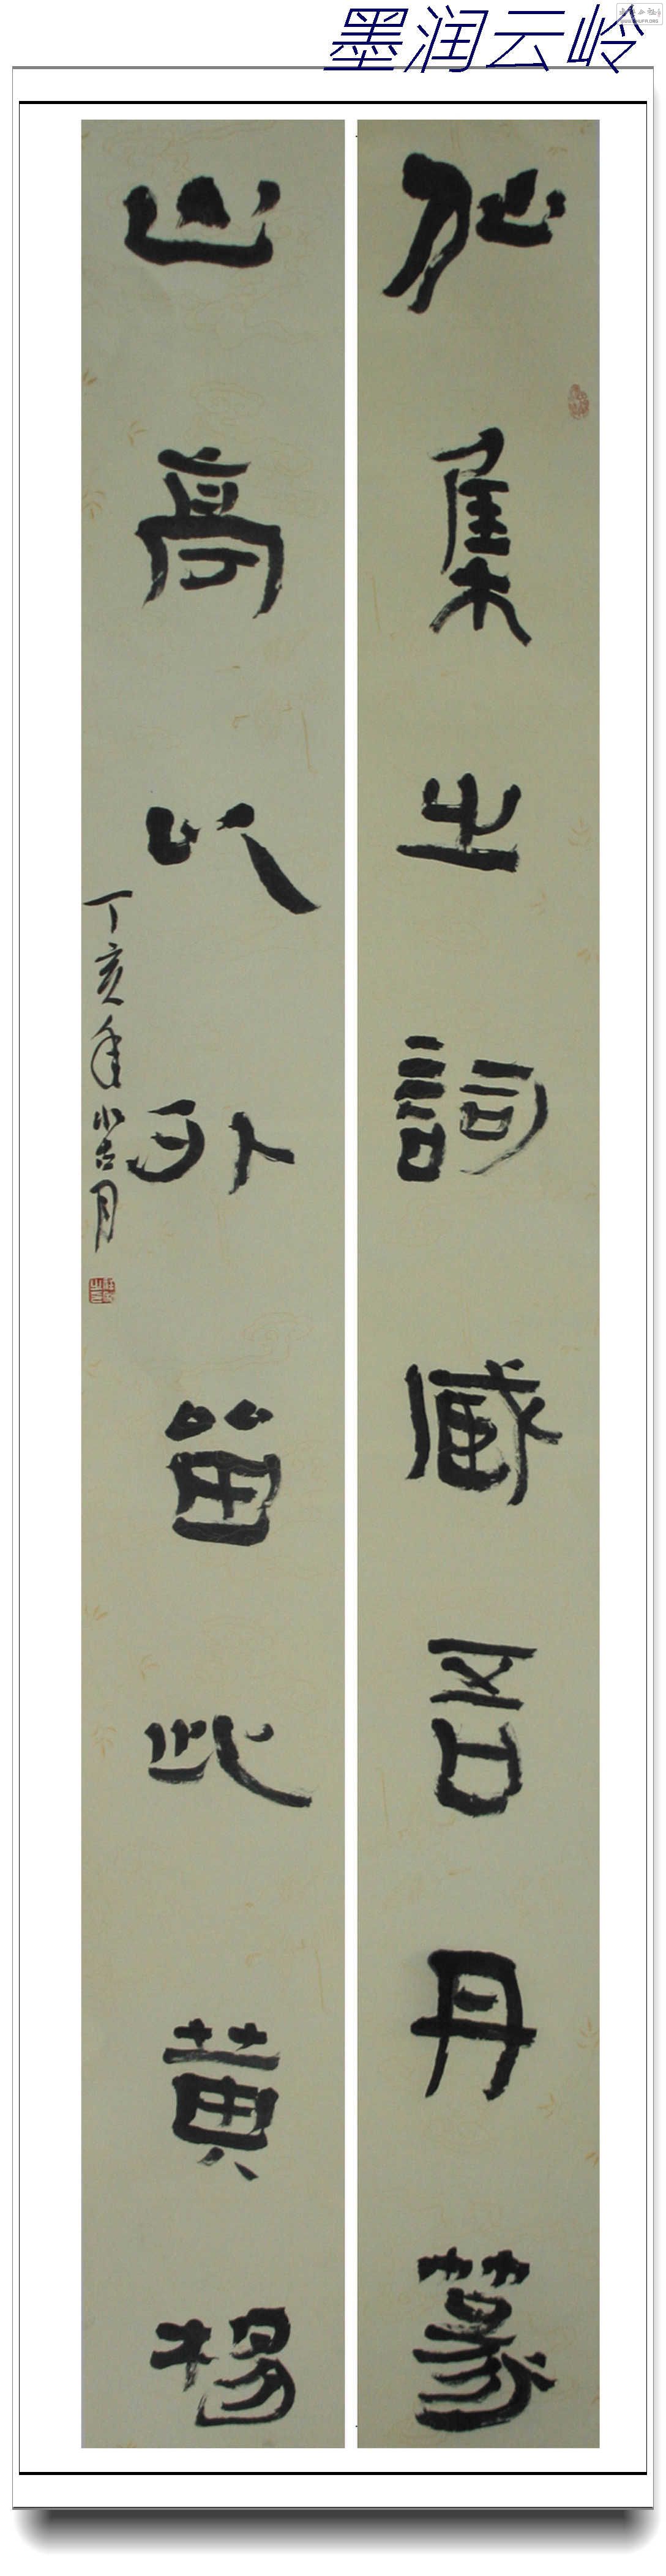 墨润云岭
集之詞藏吾丹篆
山高以外留此黃楊
丁亥年